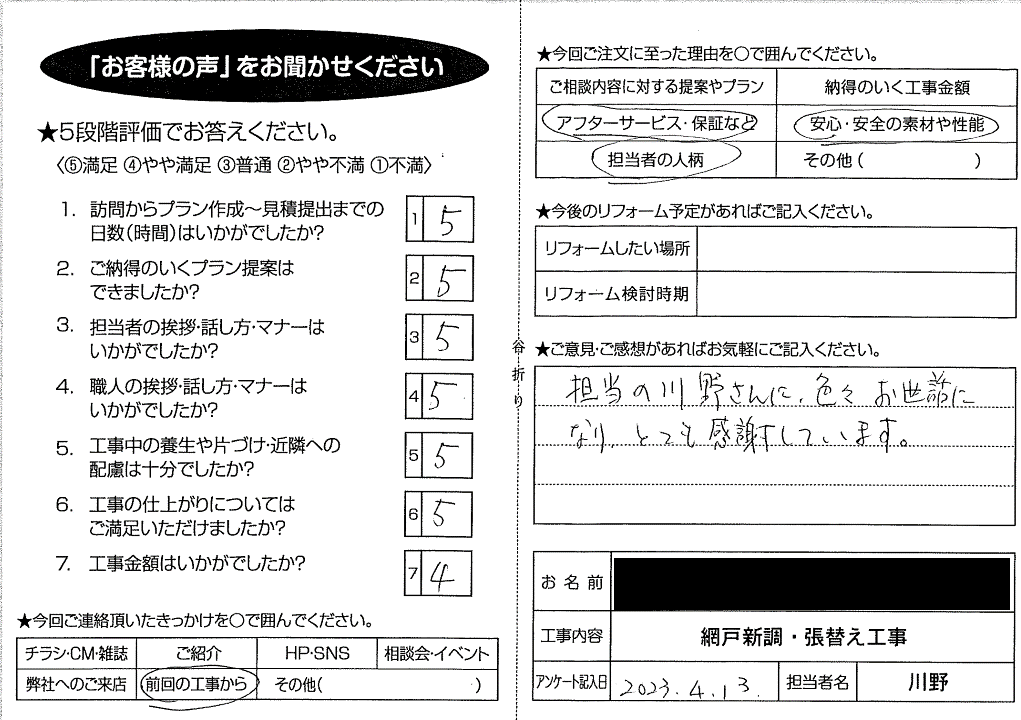 「お客様の声」をお聞かせください
★5段階評価でお答えください。
〈⑤満足 ④やや満足 ③普通 ②やや不満 ①不満〉
1. 訪問からプラン作成～見積提出までの
日数(時間)はいかがでしたか?
1 5
2. ご納得のいくプラン提案は
できましたか?
2 5
3. 担当者の挨拶・話し方・マナーは
いかがでしたか?
3 5
4. 職人の挨拶・話し方・マナーは
いかがでしたか?
4 5
5. 工事中の養生や片づけ・近隣への
配慮は十分でしたか?
5 5
6. 工事の仕上がりについては
ご満足いただけましたか?
6 5
7. 工事金額はいかがでしたか?
7 4
★今回ご連絡頂いたきっかけを○で囲んでください。
チラシ・CM・雑誌 ご紹介 HP・SNS 相談会・イベント
弊社へのご来店 前回の工事から その他( )
谷折り
★今回ご注文に至った理由を○で囲んでください。
ご相談内容に対する提案やプラン 納得のいく工事金額
アフターサービス・保証など 安心・安全の素材や性能
担当者の人柄 その他( )
★今後のリフォーム予定があればご記入ください。
リフォームしたい場所
リフォーム検討時期
★ご意見・ご感想があればお気軽にご記入ください。
担当の川野さんに、色々お世話に
なり、とても感謝しています。
お名前
工事内容 網戸新調・張替え工事
アンケート記入日 2023.4.13. 担当者名 川野